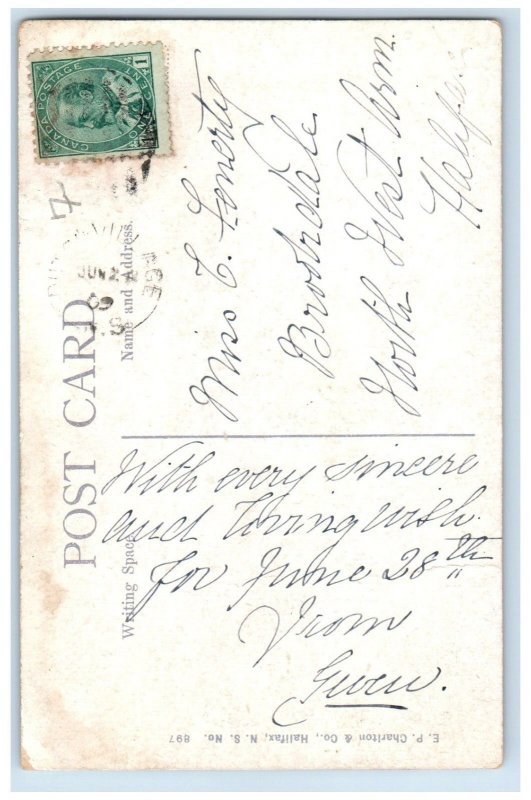 POST CARD
Writing Space.
Name and Address.
CANADA POSTAGE
ONE CENT
1
7
JUN 2
09
With every sincere
and loving wish
for June 28th
From
Gwen.
Miss E. Fenerty
Brookdale
North West Arm.
Halifax
E. P. Charlton & Co., Halifax, N. S. No. 897